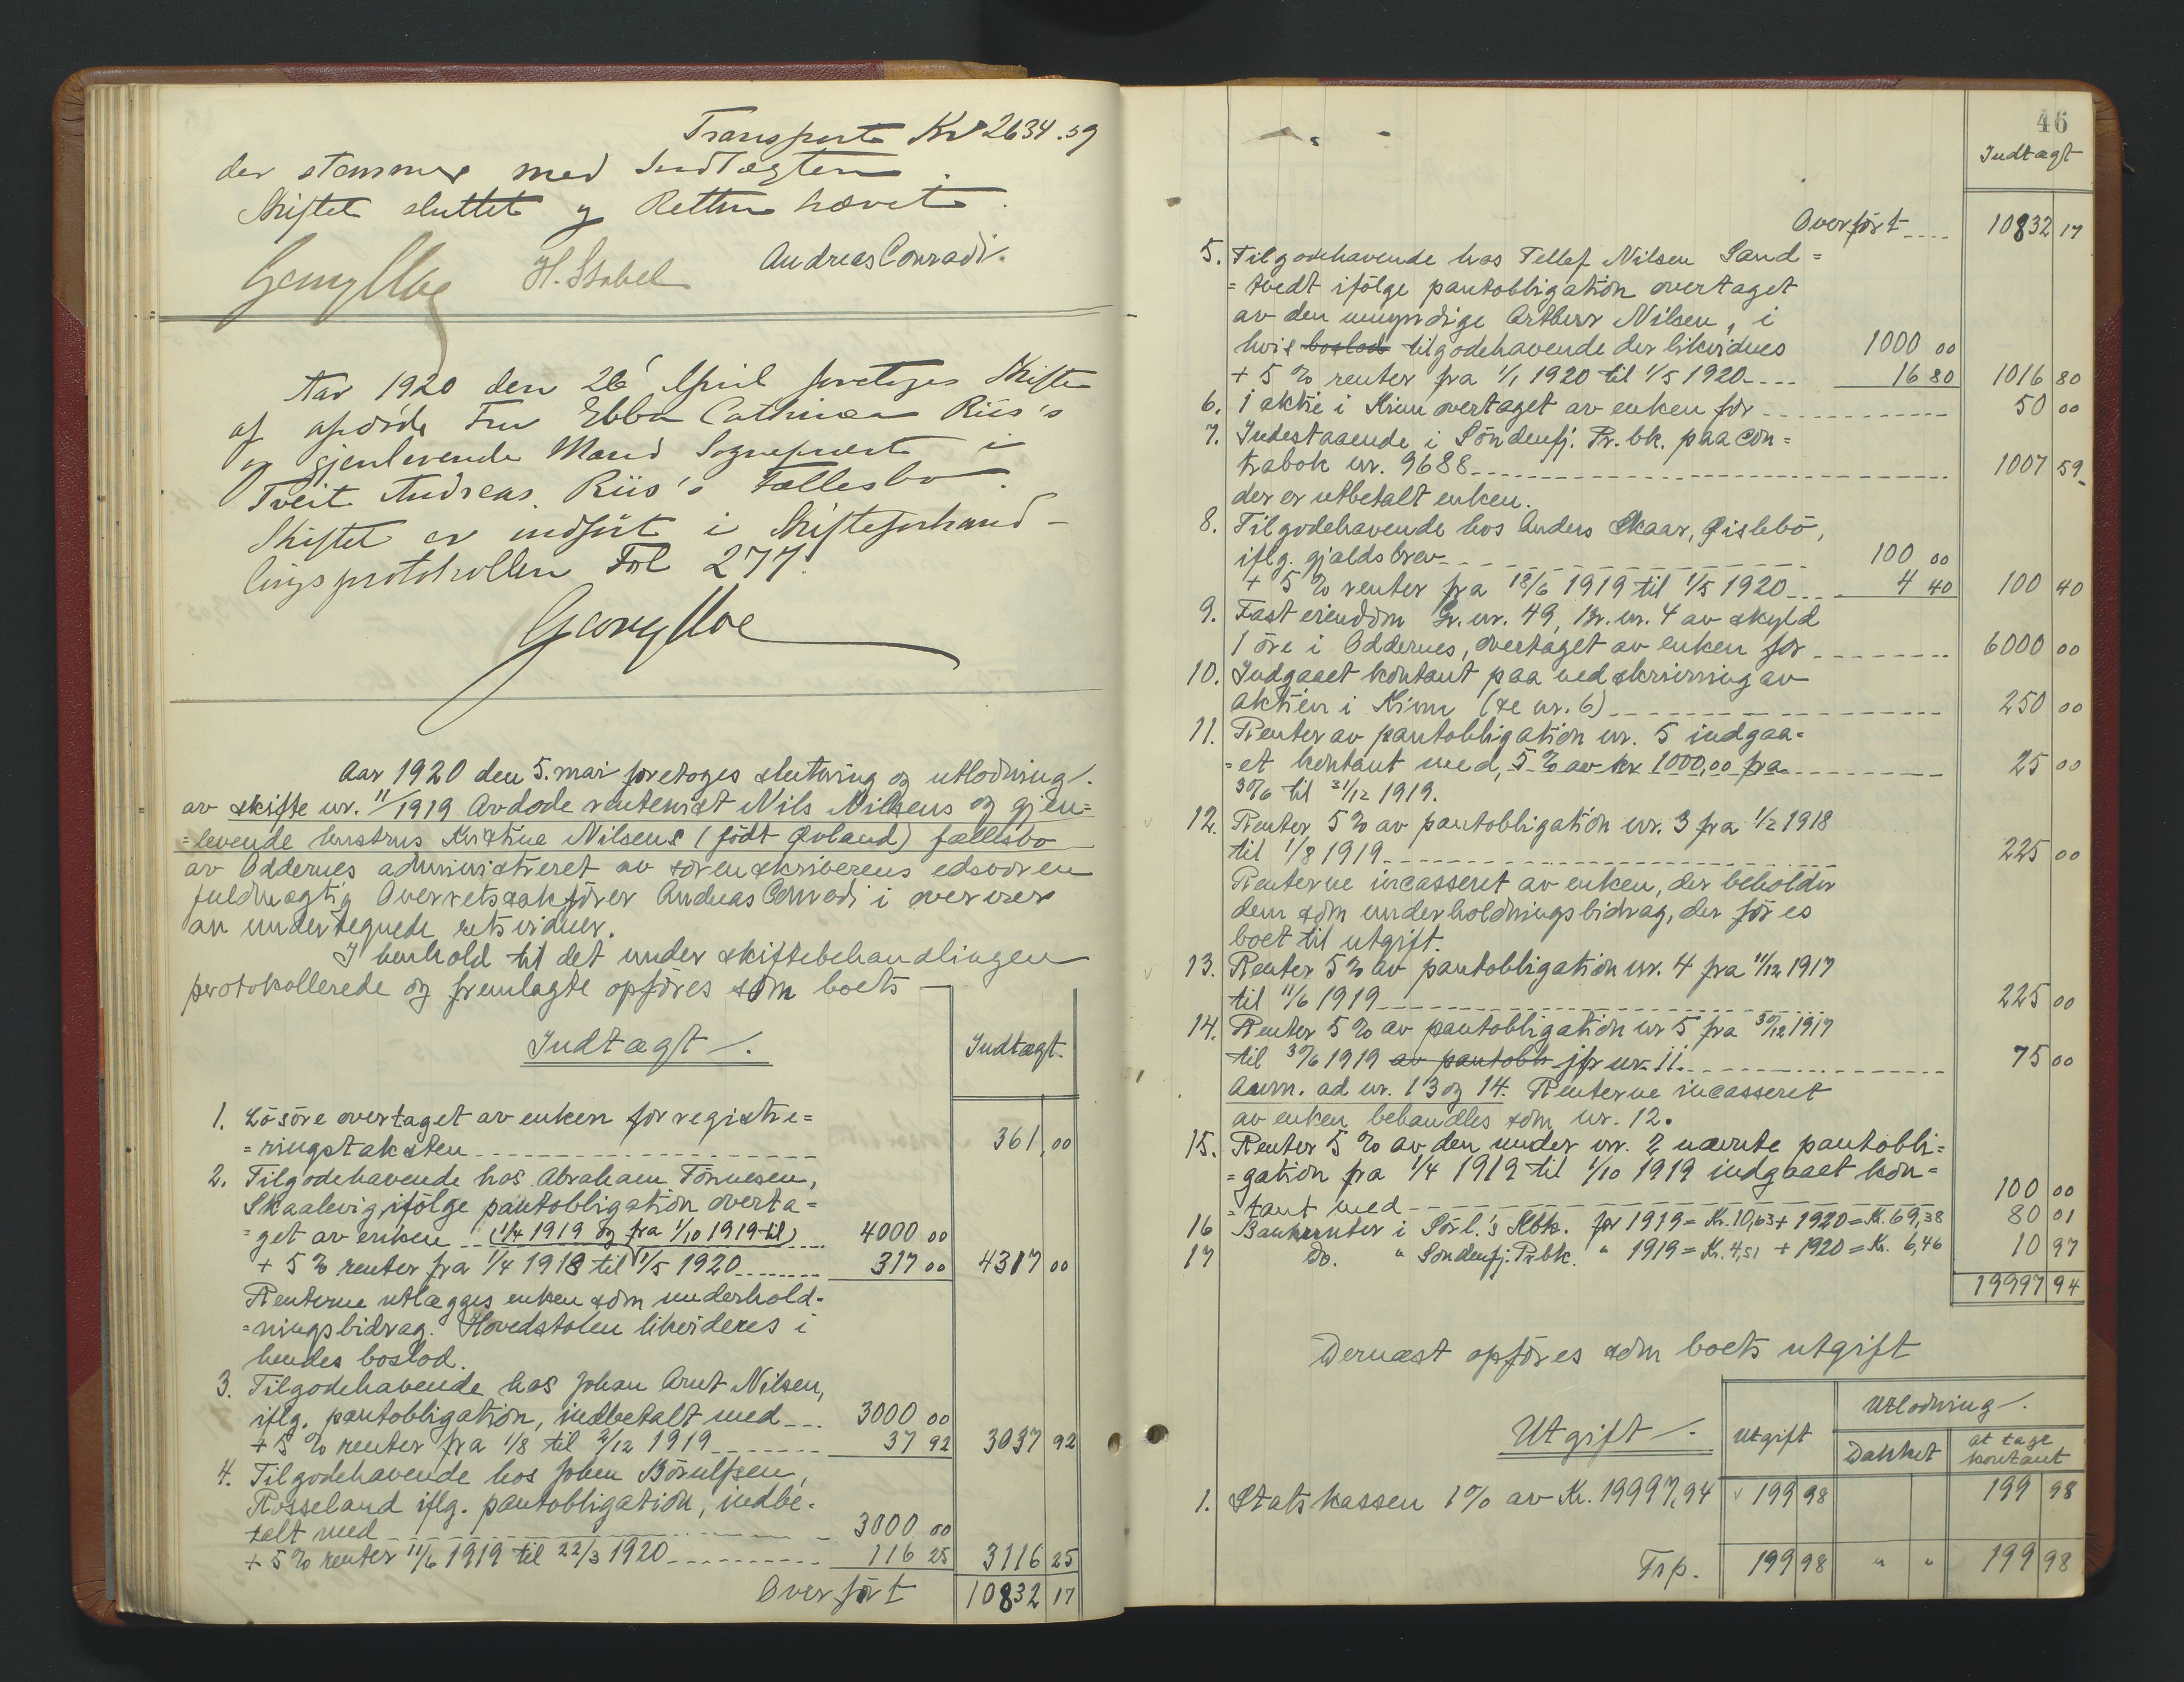 Transport Kr 2634.59
der stemmer med Indtægten.
Skiftet sluttet og Retten hævet.
H. Stabel Andreas Conradi.
Aar 1920 den 26 April foretoges Skifte
af afdøde Fru Ebba Cathinca Riis's
og gjenlevende Mand Sogneprest i
Tveit Andreas Riis's Fællesbo.
Skiftet er indført i Skifteforhand-
lingsprotokollen Fol 277.
Aar 1920 den 5. mai foretoges slutning og utlodning
av skifte nr. 11/1919 Avdøde rentenist Nils Nilsens og gjen=
=levende hustrus Kristine Nilsens (født Øvland) fællesbo
av Oddernes administreret av sorenskriverens edsvoren
fuldmægtig Overretssakfører Andreas Conradi i overvær
av undertegnede retsvidner.
I henhold til det under skiftebehandlingen
protokollerede og fremlagte opføres som boets
Indtægt Indtægt.
1. Løsøre overtaget av enken for registre=
=ringstaksten 361,00
2. Tilgodehavende hos Abraham Tønnesen,
Skaalevig, ifølge pantobligation overta=
=get av enken (1/4 1919 og fra 1/10 1919 til) 4000 00
+ 5 % renter fra 1/4 1918 til 1/5 1920 317 00 4317 00
Renterne utlægges enken som underhold=
=ningsbidrag. Hovedstolen likvideres i
hendes boslod.
3. Tilgodehavende hos Johan Arnt Nilsen,
iflg. pantobligation, indbetalt med 3000 00
+ 5 % renter fra 1/8 til 2/12 1919 37 92 3037 92
4. Tilgodehavende hos John Børulfsen,
Rosseland iflg. pantobligation, indbe=
talt med 3000 00
+ 5 % renter 11/6 1919 til 22/3 1920 116 25 3116 25
Overført 10832 17
46
Indtægt
Overført 10832 17
5. Tilgodehavende hos Tellef Nilsen Sand=
=tvedt ifølge pantobligation overtaget
av den umyndige Artbur Nilsen, i
hvis boslod tilgodehavende der likvidres 1000 00
+ 5 % renter fra 1/1 1920 til 1/5 1920 16 80 1016 80
6. 1 aktie i Kinn overtaget av enken for 50 00
7. Indestaaende i Søndenfj. Pr. bk. paa con=
trabok nr. 9688 1007 59
der er utbetalt enken.
8. Tilgodehavende hos Anders Skaar, Øislebø,
iflg. gjældsbrev 100 00
+ 5 % renter fra 18/6 1919 til 1/5 1920 4 40 100 40
9. Fast eiendom Gr. nr. 49, Br. nr. 4 av skyld
1 øre i Oddernes, overtaget av enken for 6000 00
10. Indgaaet kontant paa nedskrivning av
aktien i Kinn (se nr. 6) 250 00
11. Renter av pantobligation nr. 5 indgaa=
=et kontant med, 5 % av kr 1000,00 fra 25 00
30/6 til 31/12 1919.
12. Renter 5 % av pantobligation nr. 3 fra 1/2 1918
til 1/8 1919 225 00
Renterne incasseret av enken, der beholder
dem som underholdningsbidrag, der føres
boet til utgift.
13. Renter 5 % av pantobligation nr. 4 fra 11/12 1917
til 11/6 1919 225 00
14. Renter 5 % av pantobligation nr 5 fra 30/12 1917
til 30/6 1919 av pantobl jfr nr. 11. 75 00
Anm. ad nr. 13 og 14. Renterne incasseret
av enken behandles som nr. 12.
15. Renter 5 % av den under nr. 2 nævnte pantobli=
=gation fra 1/4 1919 til 1/10 1919 indgaaet kon=
=tant med 100 00
16 Bankrenter i Sørl.'s Kbk. for 1919 = Kr. 10,63 + 1920 = Kr. 69,38 80 01
17 Do. " Søndenfj. Prbk. " 1919 = Kr. 4,51 + 1920 = Kr. 6,46 10 97
19997 94
Dernæst opføres som boets utgift
Utgift Utgift Utlodning
Dækket at tage kontant
1. Statskassen 1 % av Kr. 19997,94 199 98 199 98
Trp. 199 98 " " 199 98